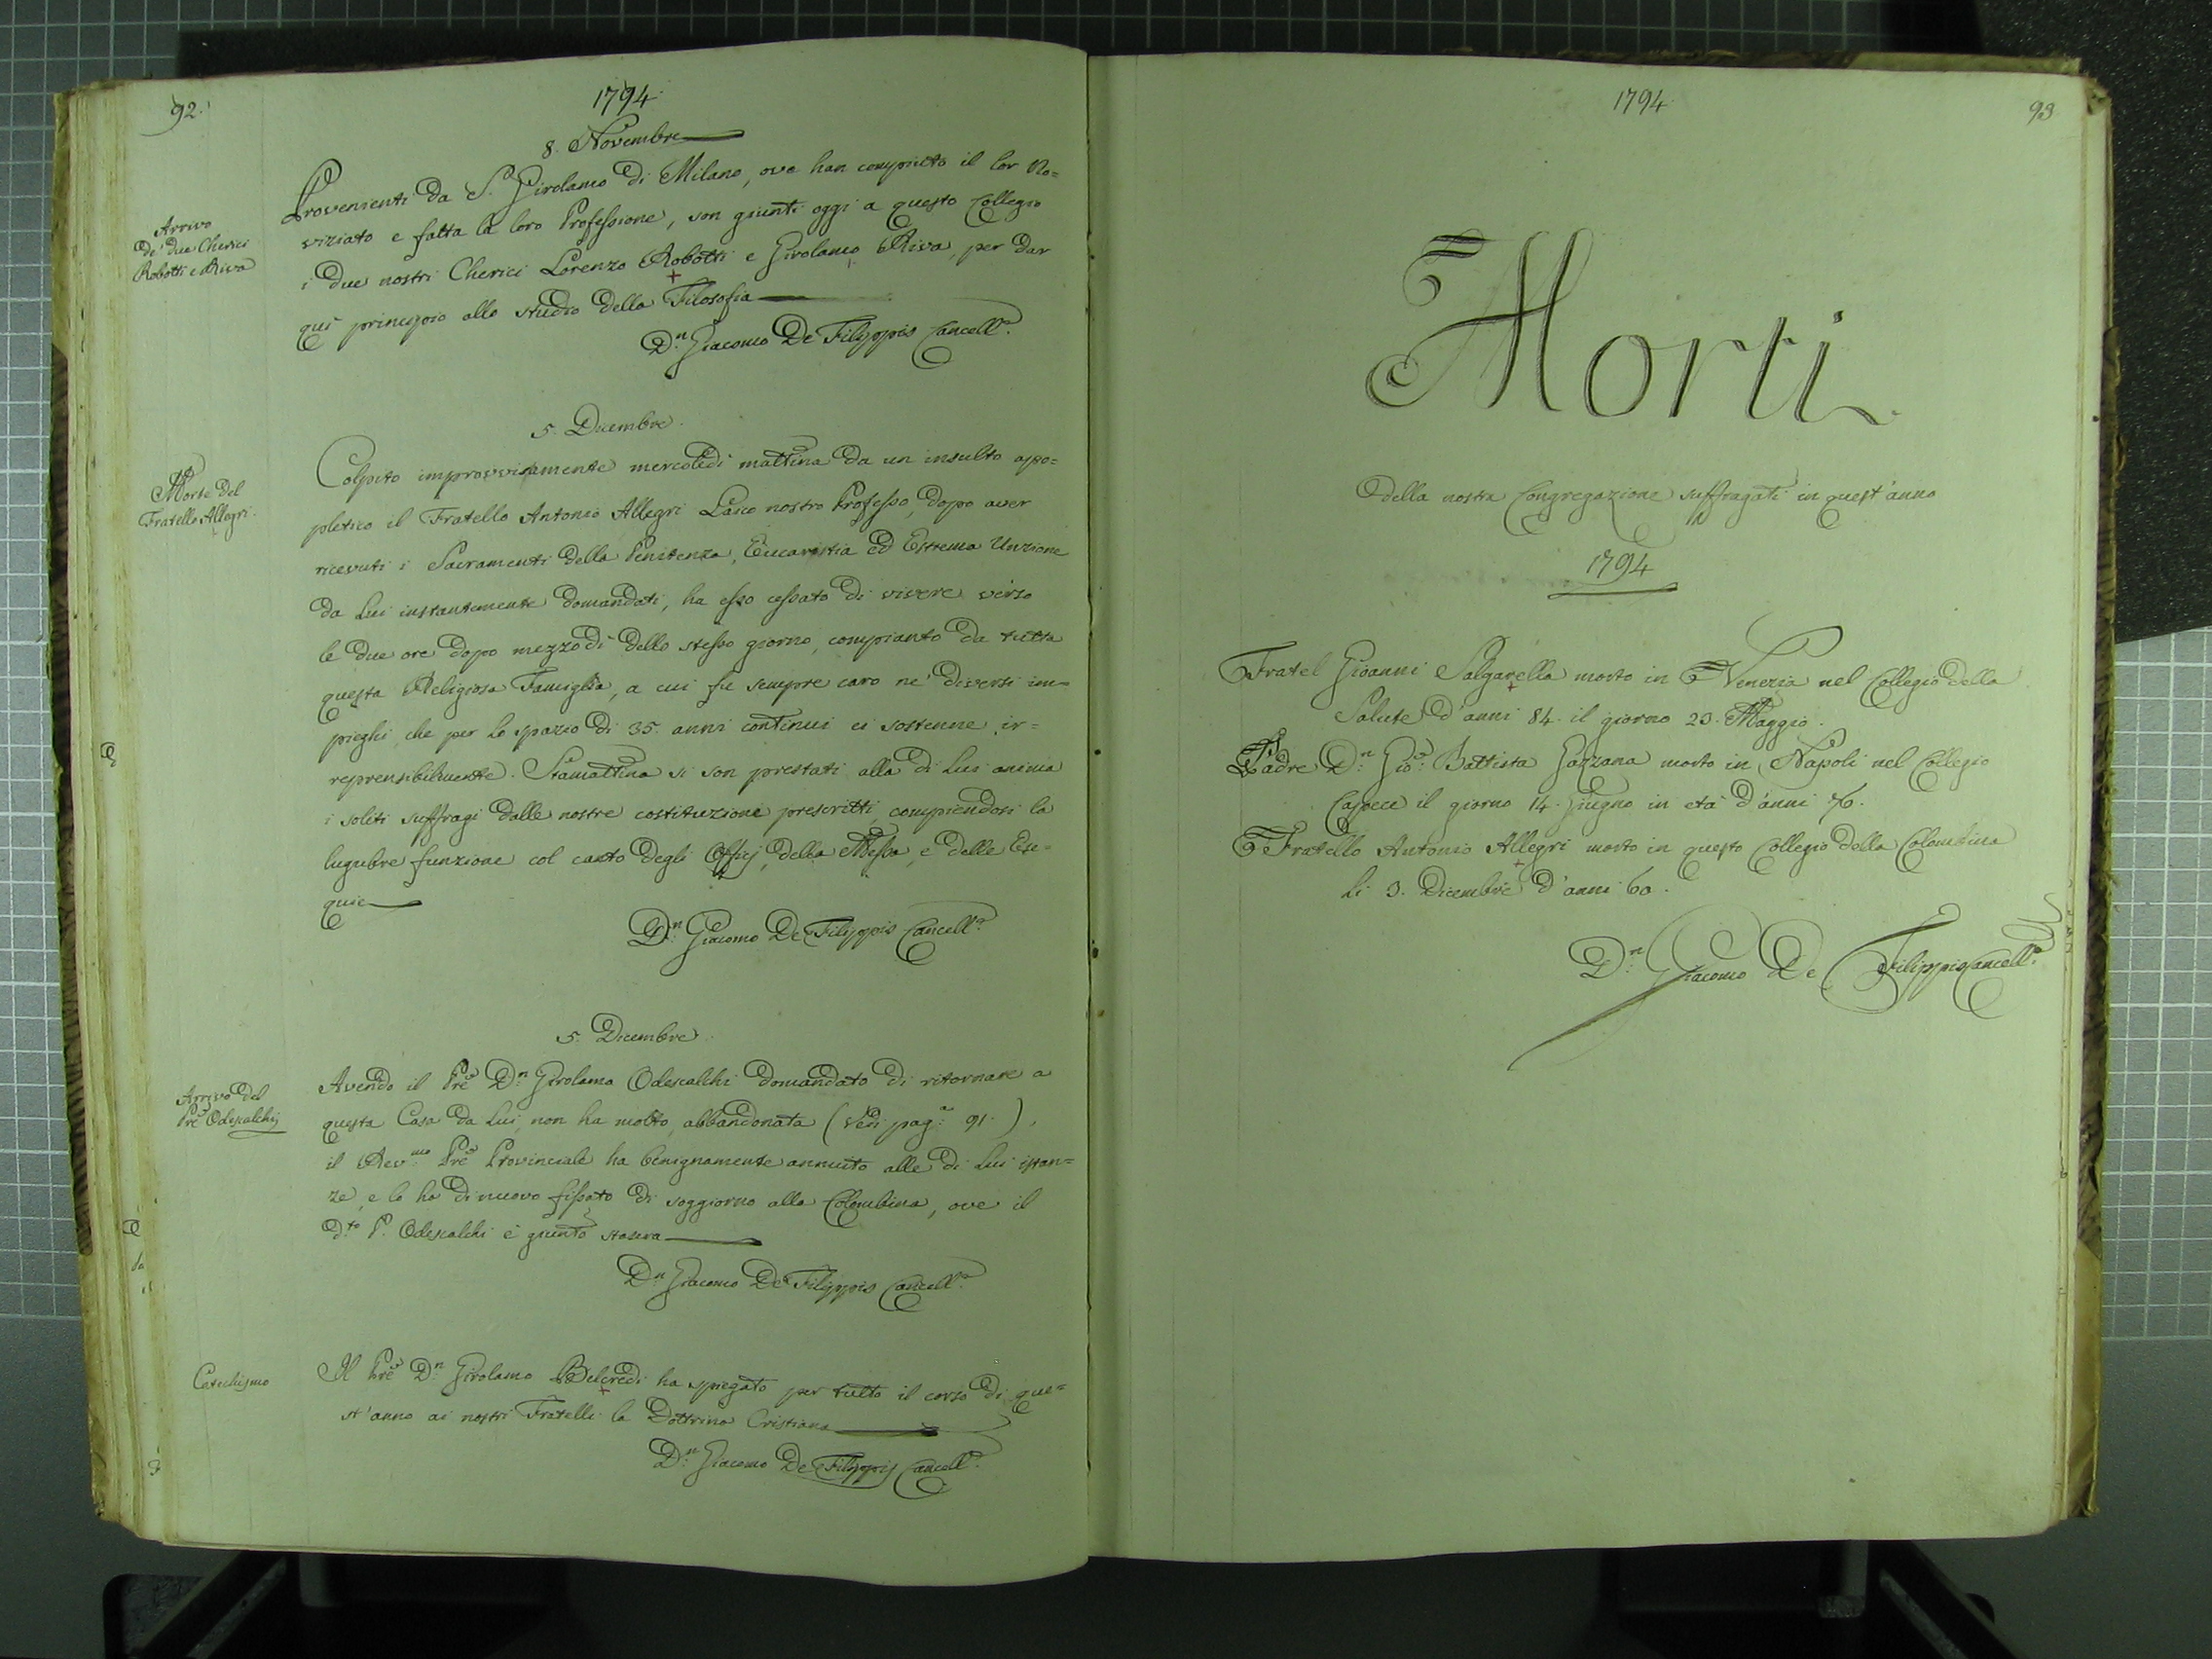 92.
1794.
8. Novembre
Arrivo
de' due Cherici
Robotti e Riva
Provenienti da S. Girolamo di Milano, ove han compiuto il lor No=
viziato e fatta la loro Professione, son giunti oggi a questo Collegio
i due nostri Cherici Lorenzo Robotti e Girolamo Riva, per dar
qui principio allo studio della Filosofia
Dn. Giacomo De Filippis Cancell.e
5. Dicembre.
Morte del
Fratello Allegri.
Colpito improvvisamente mercoledì mattina da un insulto apo=
pletico il Fratello Antonio Allegri Laico nostro Professo, dopo aver
ricevuti i Sacramenti della Penitenza, Eucaristia ed Estrema Unzione
da Lui instantemente domandati, ha esso cessato di vivere verso
le due ore dopo mezzodì dello stesso giorno, compianto da tutta
questa Religiosa Famiglia, a cui fu sempre caro ne' diversi im=
pieghi, che per lo spazio di 35. anni continui ei sostenne ir=
reprensibilmente. Stamattina si son prestati alla di Lui anima
i soliti suffragi dalle nostre costituzione prescritti, compiendosi la
lugubre funzione col canto degli Officj, della Messa, e delle Ese=
quie
Dn. Giacomo De Filippis Cancell.e
5. Dicembre
Arrivo del
Pre Odescalchi
Avendo il Pre Dn. Girolamo Odescalchi domandato di ritornare a
questa Casa da Lui, non ha molto, abbandonata (Vedi pag.a 91.),
il Rev.mo Pre Provinciale ha benignamente annuito alle di Lui istan=
ze, e lo ha di nuovo fissato di soggiorno alla Colombina, ove il
d.to P. Odescalchi è giunto stasera
Dn. Giacomo De Filippis Cancell.e
Catechismo
Il Pre Dn. Girolamo Belcredi ha spiegato per tutto il corso di que=
st'anno ai nostri Fratelli la Dottrina Cristiana
Dn. Giacomo De Filippis Cancell.e
1794.
93.
Morti
della nostra Congregazione suffragati in quest'anno
1794
Fratel Gioanni Salgarella morto in Venezia nel Collegio della
Salute d'anni 84. il giorno 23. Maggio.
Padre Dn. Gio: Battista Gazzana morto in Napoli nel Collegio
Capece il giorno 14. Giugno in età d'anni 76.
Fratello Antonio Allegri morto in questo Collegio della Colombina
li 3. Dicembre d'anni 60.
Dn. Giacomo De Filippis Cancell.e